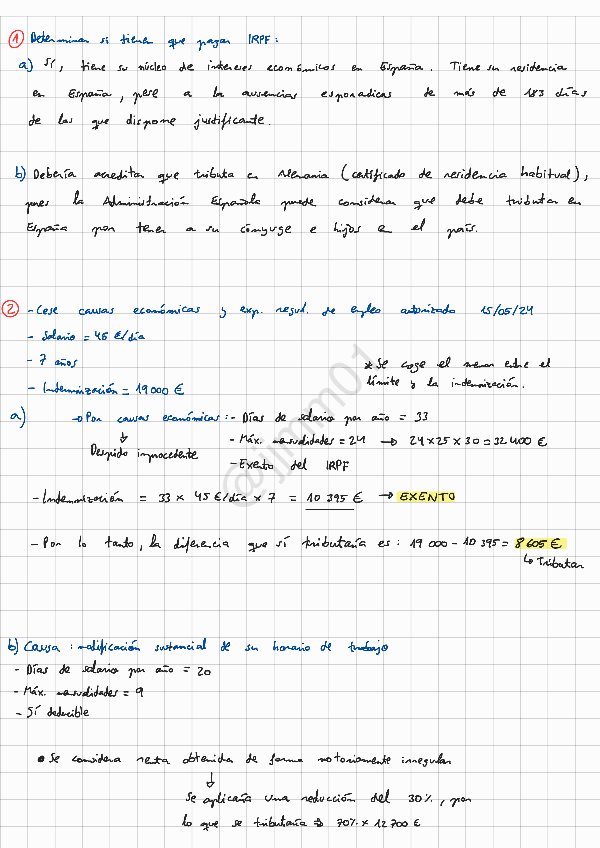 ① Determinar si tienen que pagar IRPF:
a) Sí, tiene su núcleo de intereses económicos en España. Tiene su residencia
en España, pese a la ausencias esporadicas de más de 183 días
de las que dispone justificante.
b) Debería acreditar que tributa en Alemania (certificado de residencia habitual),
pues la Administración Española puede considerar que debe tributar en
España por tener a su cónyuge e hijos en el país.
② - Cese causas económicas y exp. regul. de empleo autorizado 15/05/24
- Salario = 45 €/día
- 7 años
* Se coge el menor entre el
límite y la indemnización.
- Indemnización = 19000 €
a) → Por causas económicas: - Días de salario por año = 33
↓
Despido improcedente
- Máx. mensualidades = 24 → 24 x 25 x 30 = 32 400 €
- Exento del IRPF
- Indemnización = 33 x 45 €/día x 7 = 10 395 € → EXENTO
- Por lo tanto, la diferencia que sí tributaría es: 19 000 - 10 395 = 8 605 €
↳ Tributar
@jjmm01
b) Causa: modificación sustancial de su horario de trabajo
- Días de salario por año = 20
- Máx. mensualidades = 9
- Sí deducible
• Se considera renta obtenida de forma notoriamente irregular
↓
Se aplicaría una reducción del 30%, por
lo que se tributaría ⇒ 70% x 12 700 €